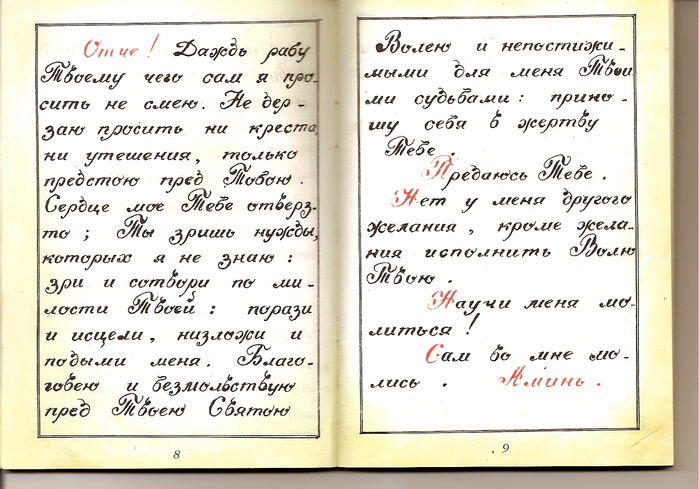 Отче! Даждь рабу
Твоему чего сам я про-
сить не смею. Не дер-
заю просить ни креста
ни утешения, только
предстою пред Тобою.
Сердце мое Тебе отверз-
то; Ты зришь нужды,
которых я не знаю:
зри и сотвори по ми-
лости Твоей: порази
и исцели, низложи и
подыми меня. Благо-
говею и безмольствую
пред Твоею Святою
8
Волею и непостижи-
мыми для меня Твои
ми судьбами: прино-
шу себя в жертву
Тебе.
Предаюсь Тебе.
Нет у меня другого
желания, кроме жела-
ния исполнить Волю
Твою.
Научи меня мо-
литься!
Сам во мне мо-
лись. Аминь.
9